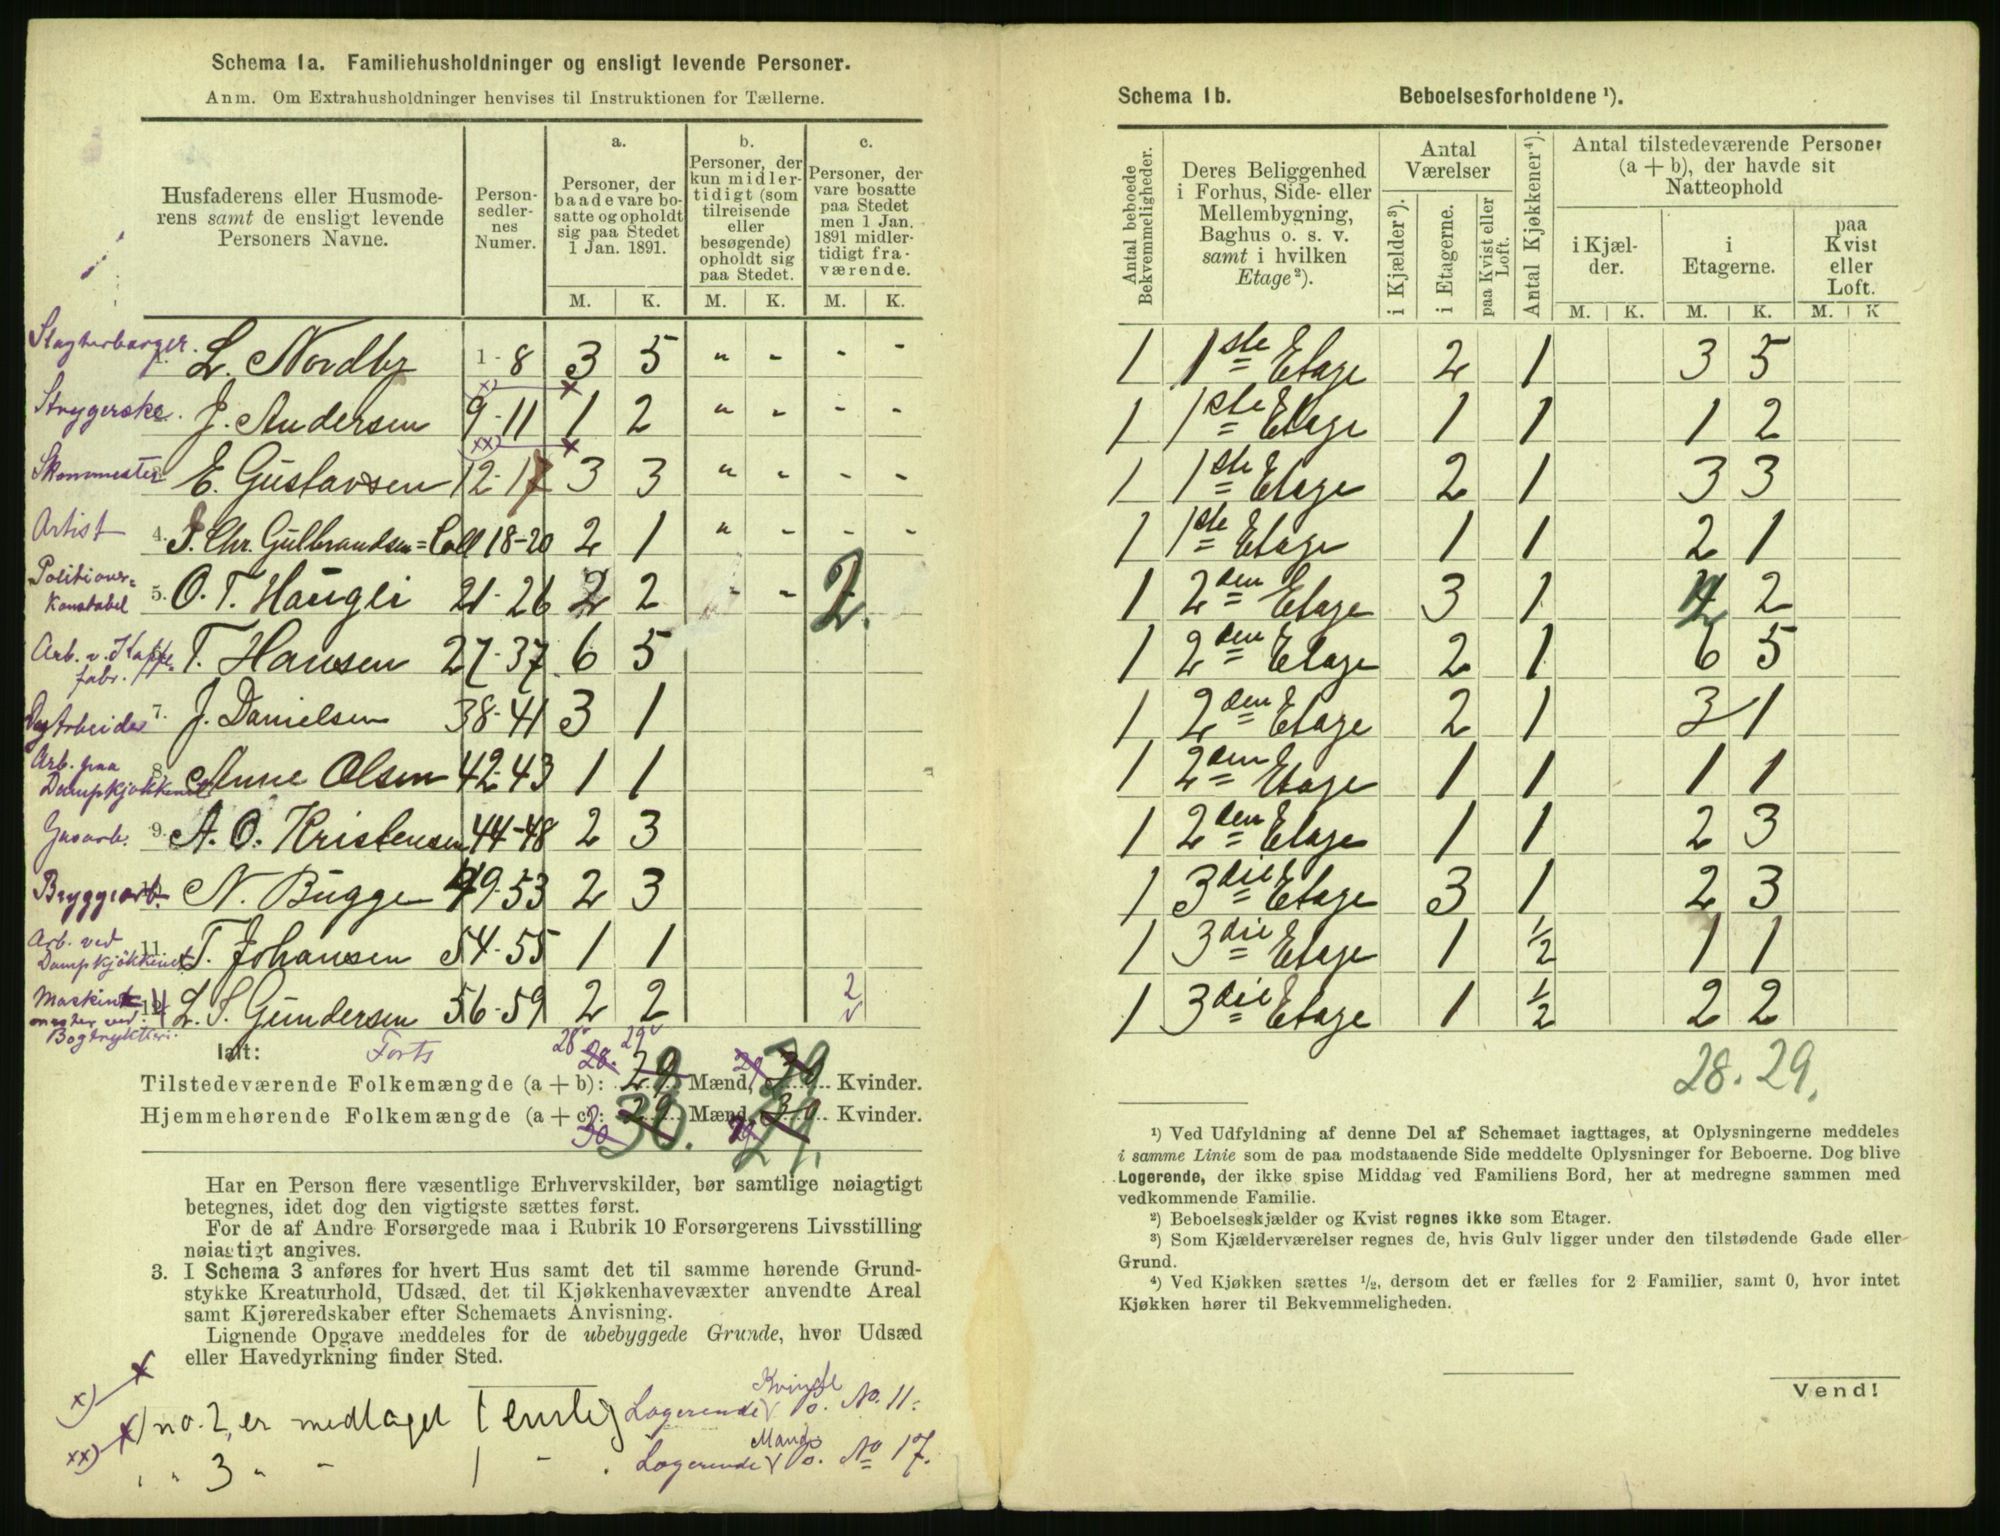 Schema 1a. Familiehusholdninger og ensligt levende Personer.
Anm. Om Extrahusholdninger henvises til Instruktionen for Tællerne.
Husfaderens eller Husmoderens samt de ensligt levende Personers Navne.
Personsedlernes Numer.
a.
Personer, der baade vare bosatte og opholdt sig paa Stedet 1 Jan. 1891.
b.
Personer, der kun midlertidigt (som tilreisende eller besøgende) opholdt sig paa Stedet.
c.
Personer, der vare bosatte paa Stedet men 1 Jan. 1891 midlertidigt fraværende.
M. K. M. K. M. K.
Slagterborger. 1. L. Nordby 1-8 3 5 " - - -
Strygerske. J. Andersen 9-11 1 2 " - - -
Skommester E. Gustavsen 12-17 3 3 " - - -
Artist 4. J. Chr. Gulbrandsen=Coll 18-20 2 1 " - - -
Politioverkonstabel 5. O. T. Haugli 21-26 2 2 - - 2.
Arb. v. Kappefabr. T. Hansen 27-37 6 5
Dagarbeider 7. J. Danielsen 38-41 3 1
Arb. paa Dampkjøkkenet 8. Anne Olsen 42-43 1 1
Gasarb. 9. A. O. Kristensen 44-48 2 3
Bryggearb. N. Bugge 49-53 2 3
Arb. ved Dampkjøkkenet 11. T. Johansen 54-55 1 1
Maskinmester ved Bogtrykkeri. 12. L. S. Gundersen 56-59 2 2 2
Ialt: Forts 28 29
Tilstedeværende Folkemængde (a + b): 28. 29 Mænd, 29 30 Kvinder.
Hjemmehørende Folkemængde (a + c): 30 29 30. Mænd, 29 30 29. Kvinder.
Har en Person flere væsentlige Erhvervskilder, bør samtlige nøiagtigt
betegnes, idet dog den vigtigste sættes først.
For de af Andre Forsørgede maa i Rubrik 10 Forsørgerens Livsstilling
nøiagtigt angives.
3. I Schema 3 anføres for hvert Hus samt det til samme hørende Grund-
stykke Kreaturhold, Udsæd, det til Kjøkkenhavevæxter anvendte Areal
samt Kjøreredskaber efter Schemaets Anvisning.
Lignende Opgave meddeles for de ubebyggede Grunde, hvor Udsæd
eller Havedyrkning finder Sted.
x) no. 2, er medtaget 1 enslig Logerende Kvinde No. 11.
xx) " " 3 " - 1 - . Logerende Mand No 17.
Schema 1b. Beboelsesforholdene ¹).
Antal beboede Bekvemmeligheder.
Deres Beliggenhed i Forhus, Side- eller Mellembygning, Baghus o. s. v. samt i hvilken Etage²).
Antal Værelser
i Kjælder³).
i Etagerne.
paa Kvist eller Loft.
Antal Kjøkkener⁴).
Antal tilstedeværende Personer (a + b), der havde sit Natteophold
i Kjælder.
i Etagerne.
paa Kvist eller Loft.
M. K. M. K. M. K
1 1ste Etage 2 1 3 5
1 1ste Etage 1 1 1 2
1 1ste Etage 2 1 3 3
1 1ste Etage 1 1 2 1
1 2den Etage 3 1 2 2
1 2den Etage 2 1 6 5
1 2den Etage 2 1 3 1
1 2den Etage 1 1 1 1
1 2den Etage 1 1 2 3
1 3die Etage 3 1 2 3
1 3die Etage 1 ½ 1 1
1 3die Etage 1 ½ 2 2
28. 29.
¹) Ved Udfyldning af denne Del af Schemaet iagttages, at Oplysningerne meddeles
i samme Linie som de paa modstaaende Side meddelte Oplysninger for Beboerne. Dog blive
Logerende, der ikke spise Middag ved Familiens Bord, her at medregne sammen med
vedkommende Familie.
²) Beboelseskjælder og Kvist regnes ikke som Etager.
³) Som Kjælderværelser regnes de, hvis Gulv ligger under den tilstødende Gade eller
Grund.
⁴) Ved Kjøkken sættes ½, dersom det er fælles for 2 Familier, samt 0, hvor intet
Kjøkken hører til Bekvemmeligheden.
Vend!